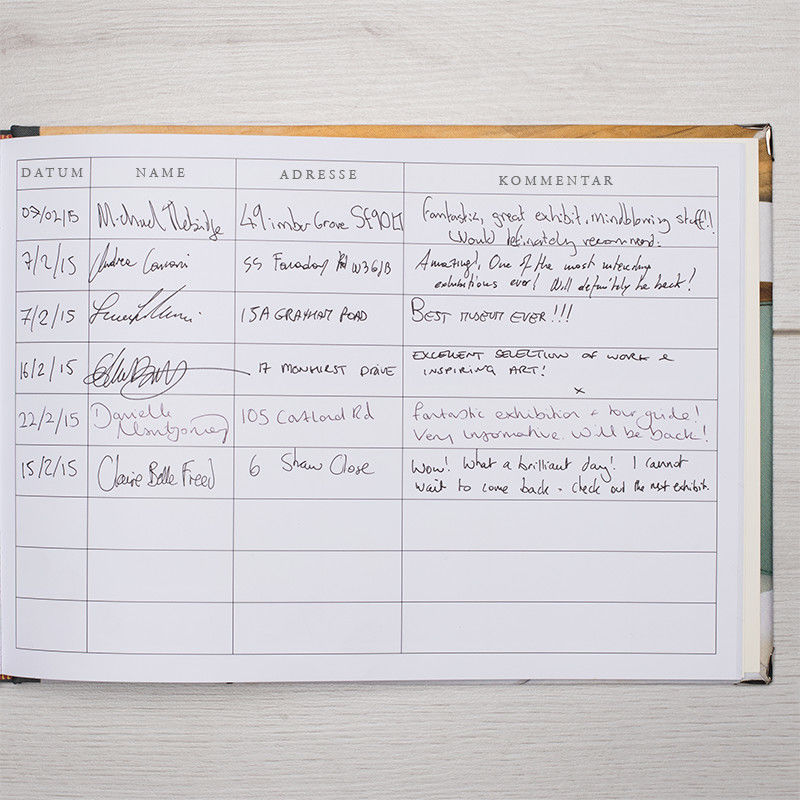 DATUM NAME ADRESSE KOMMENTAR
07/02/15 Michael Grove Fantastic, great exhibit, mindblowing stuff!!
Would definately recommend.
7/2/15 Andrea 55 Faraday Rd W36JB Amazing!, One of the most interesting
exhibitions ever! Will definitely be back!
7/2/15 15A GRAYHAM ROAD BEST MUSEUM EVER!!!
16/2/15 17 MONHIRST DRIVE EXCELLENT SELECTION OF WORK &
INSPIRING ART!
x
22/2/15 Danielle 105 Rd fantastic exhibition + tour guide!
Montgomery Very informative. Will be back!
15/2/15 Claire Belle Freed 6 Shaw Close Wow! What a brilliant day! I cannot
wait to come back - check out the next exhibit.